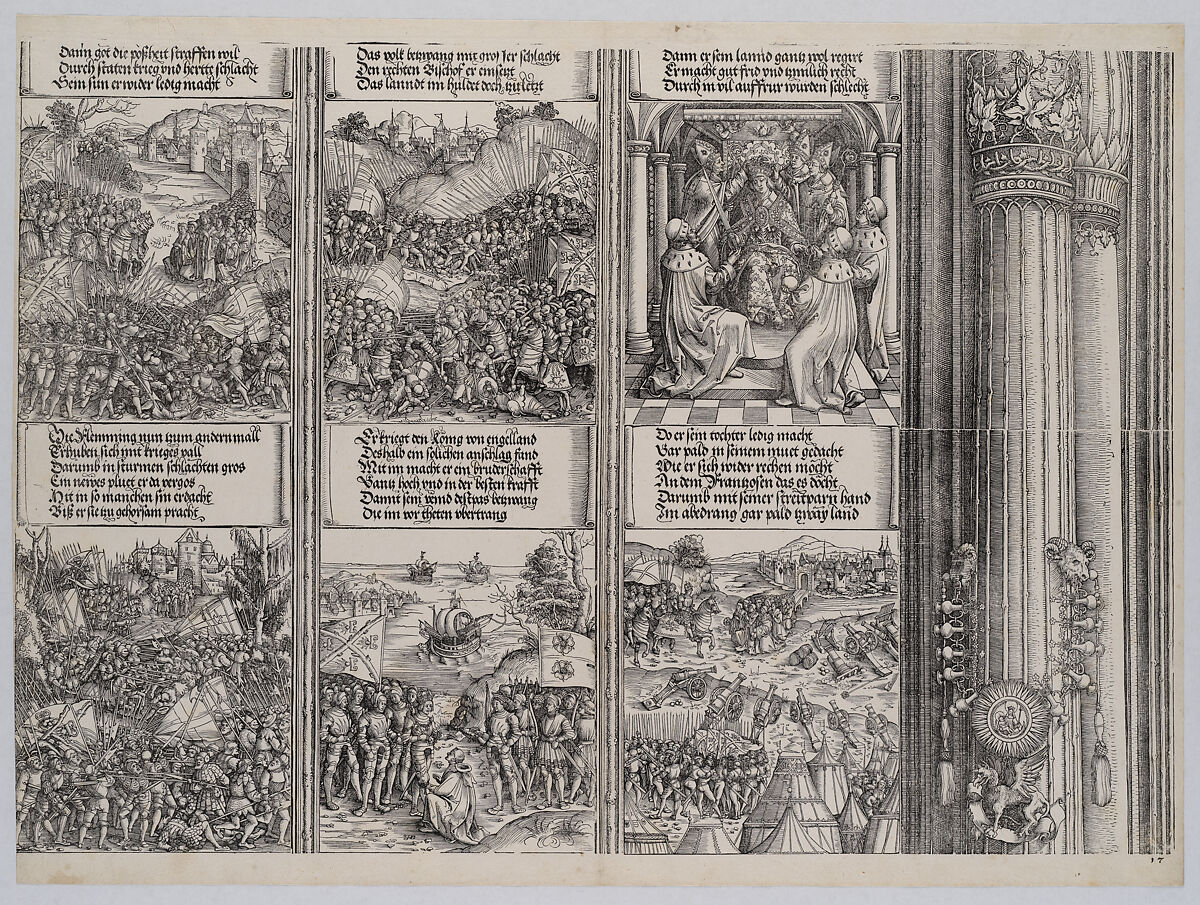 Dann got die poßheit straffen wil
Durch staten krieg vnd hertte schlacht
Sein sun er wider ledig macht
Das volk betzwang mit grosser schlacht
Den rechten Bischof er einsetzt
Das lanndt im huldet doch zu letzt
Dann er sein lannd gantz wol regirt
Er macht gut frid vnd zimlich recht
Durch in vil auffrur wurden schlecht
Die Flemming nun zum andernmall
Erhuben sich mit krieges vall
Darumb in sturmen schlachten gros
Ein newes pluet er da vergos
Mit in so manchen sin erdacht
Biß er sie zu gehorsam pracht
Er kriegt den König von engelland
Deshalb ein solichen anschlag fand
Mit im macht er ein bruderschafft
Gantz hoch vnd in der besten krafft
Damit sein veind destbas betzwang
Die im vor theten vbertrang
Do er sein tochter ledig macht
Gar pald in seinem muet gedacht
Wie er sich wider rechen möcht
An dem Frantzosen das es döcht
Darumb mit seiner streitparn hand
Im abedrang gar pald tzway land
17